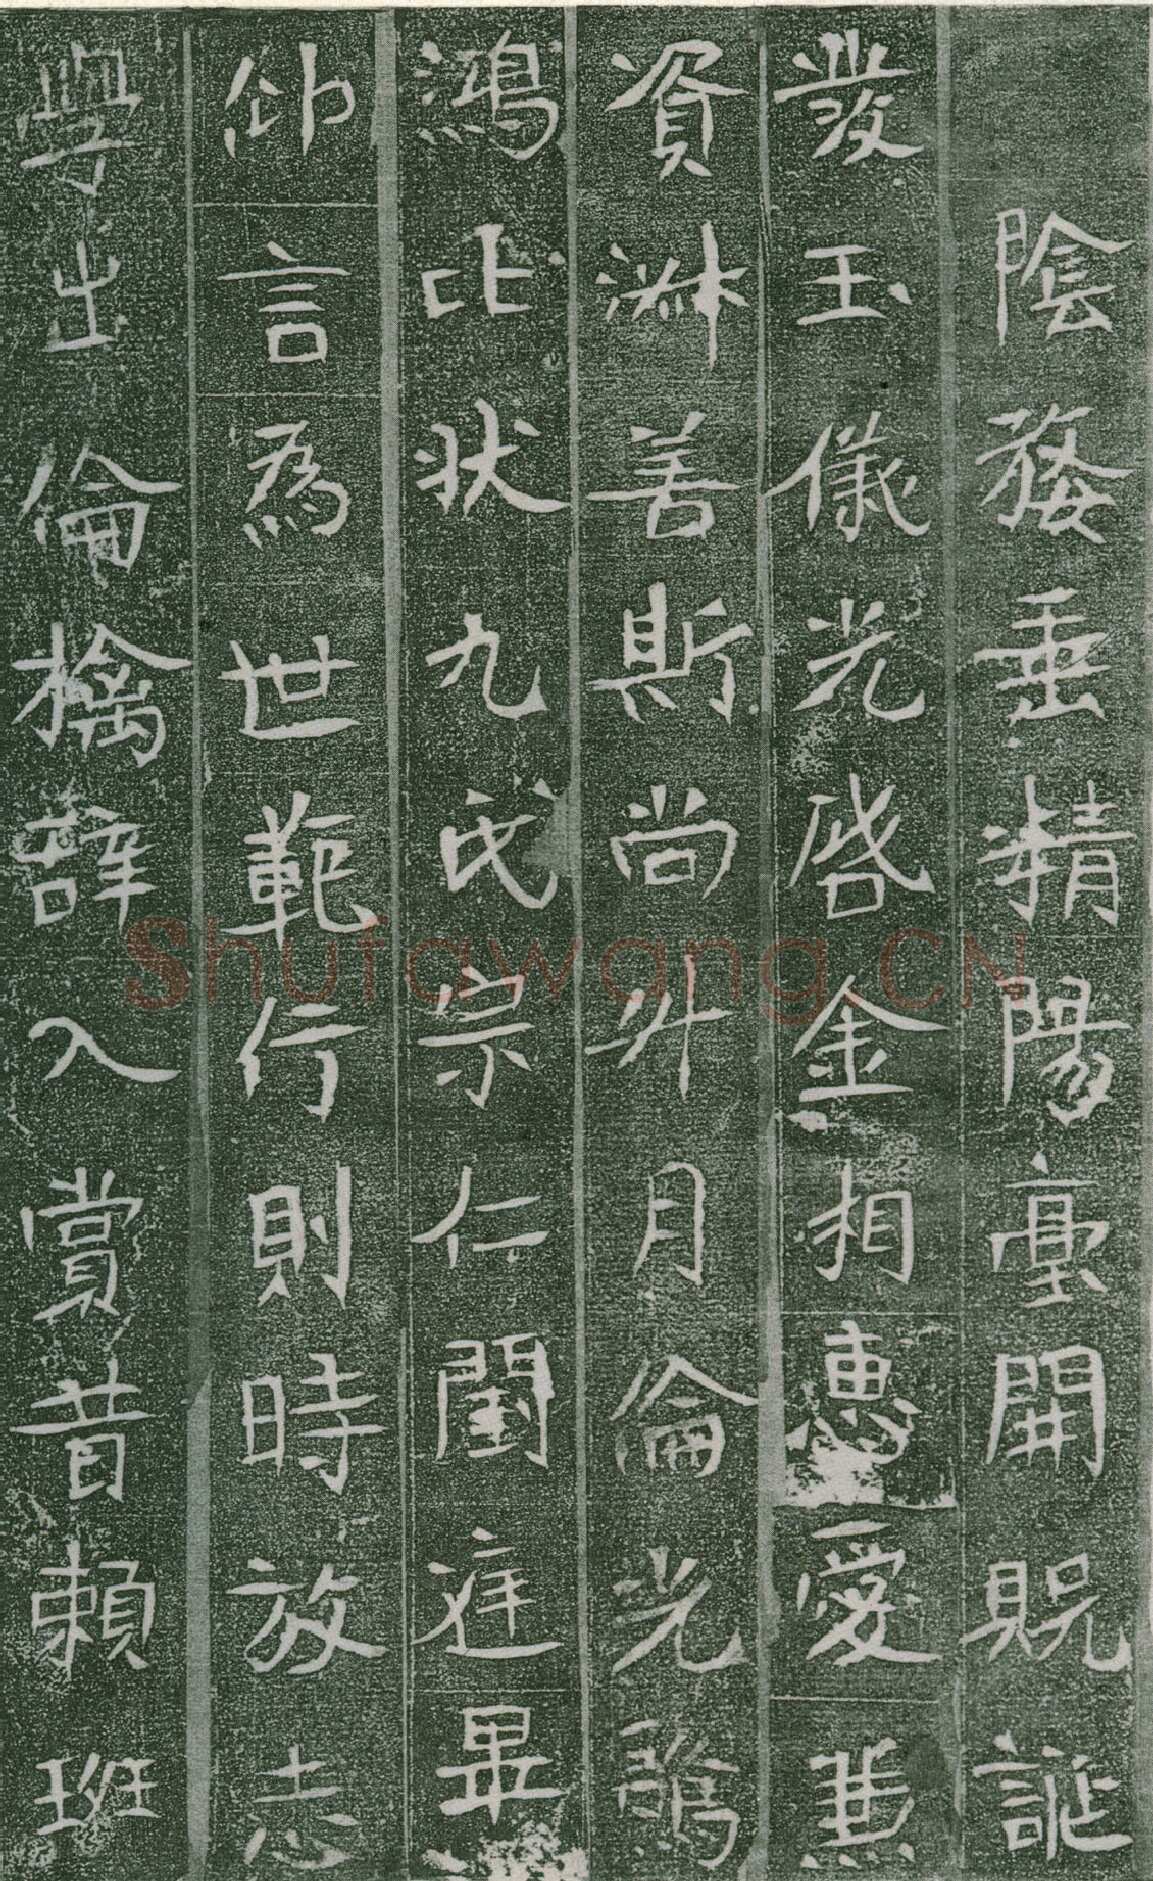 陰婺垂精陽臺開貺誕
發玉儀光啓金相惠愛兼
資淑善斯尚升月淪光
鴻比狀九氏宗仁閨庭畢
仰言為世範行則時放志
學出倫摛辭入賞昔賴班
Shufawang.CN